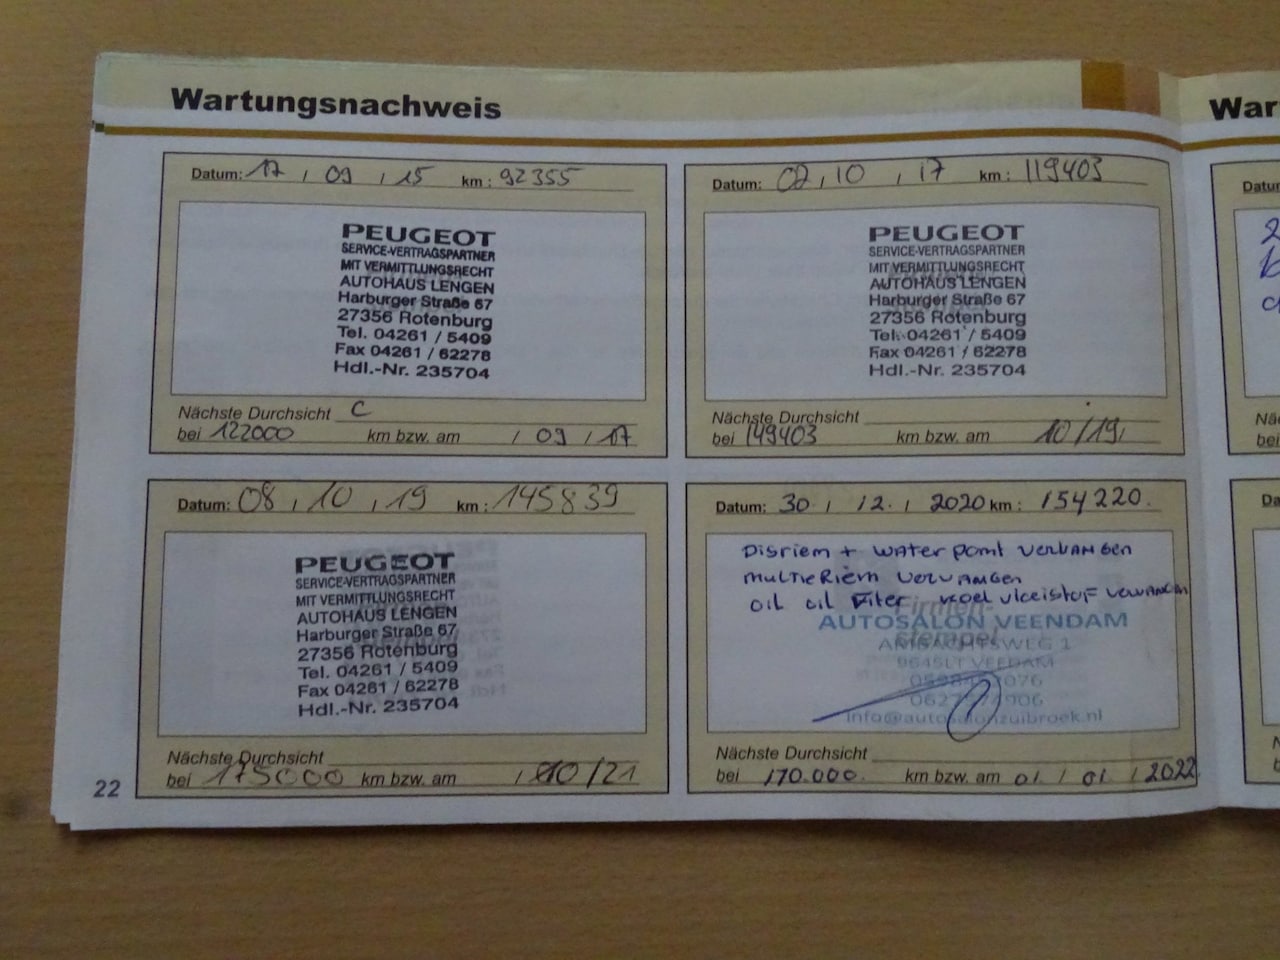 Wartungsnachweis
Datum: 17 / 09 / 15 km: 92355
PEUGEOT
SERVICE-VERTRAGSPARTNER
MIT VERMITTLUNGSRECHT
AUTOHAUS LENGEN
Harburger Straße 67
27356 Rotenburg
Tel. 04261 / 5409
Fax 04261 / 62278
Hdl.-Nr. 235704
Nächste Durchsicht C
bei 122000 km bzw. am / 09 / 17
Datum: 02 / 10 / 17 km: 119403
PEUGEOT
SERVICE-VERTRAGSPARTNER
MIT VERMITTLUNGSRECHT
AUTOHAUS LENGEN
Harburger Straße 67
27356 Rotenburg
Tel. 04261 / 5409
Fax 04261 / 62278
Hdl.-Nr. 235704
Nächste Durchsicht
bei 149403 km bzw. am 10/19/
Datum: 08 / 10 / 19 km: 145839
PEUGEOT
SERVICE-VERTRAGSPARTNER
MIT VERMITTLUNGSRECHT
AUTOHAUS LENGEN
Harburger Straße 67
27356 Rotenburg
Tel. 04261 / 5409
Fax 04261 / 62278
Hdl.-Nr. 235704
Nächste Durchsicht
bei 175000 km bzw. am / 10 / 21
Datum: 30 / 12. / 2020 km: 154220.
Disriem + waterpomt vervangen
multieRiem vervangen
oil oil Filter koelvleistof vervangen
Firmen-
stempel
AUTOSALON VEENDAM
AMBACHTSWEG 1
9645LT VEEDAM
info@autosalonzuibroek.nl
Nächste Durchsicht
bei 170.000. km bzw. am 01 / 01 / 2022
22
War
Datu
Nä
bei